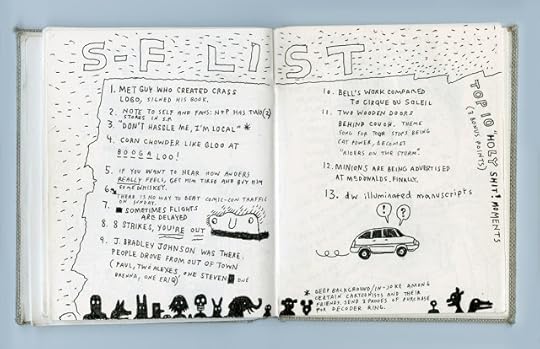 S-F LIST
1. MET GUY WHO CREATED CRASS
LOGO, SIGNED HIS BOOK.
2. NOTE TO SELF AND FANS: N+P HAS TWO (2)
STORES IN S.F.
3. "DON'T HASSLE ME, I'M LOCAL" *
4. CORN CHOWDER LIKE GLOO AT
BOOGALOO!
5. IF YOU WANT TO HEAR HOW ANDERS
REALLY FEELS, GET HIM TIRED AND BUY HIM
SOME WHISKEY.
6. THERE IS NO WAY TO BEAT COMIC-CON TRAFFIC
ON SUNDAY.
7. SOMETIMES FLIGHTS
ARE DELAYED
8. 8 STRIKES, YOU'RE OUT
9. J. BRADLEY JOHNSON WAS THERE.
PEOPLE DROVE FROM OUT OF TOWN
(PAUL, TWO ALEXES, ONE STEVEN, ONE
BRENNA, ONE ERIQ)
10. BELL'S WORK COMPARED
TO CIRQUE DU SOLEIL
11. TWO WOODEN DOORS
BEHIND COUCH. THEME
SONG FOR TOUR STOPS BEING
CAT POWER, BECOMES
"RIDERS ON THE STORM."
12. MINIONS ARE BEING ADVERTISED
AT MCDONALDS, FINALLY.
13. dw illuminated manuscripts
! ?
TOP 10 'HOLY SHIT!' MOMENTS
(3 BONUS POINTS)
* DEEP BACKGROUND/IN-JOKE AMONG
CERTAIN CARTOONISTS AND THEIR
FRIENDS. SEND 3 PROOFS OF PURCHASE
FOR DECODER RING.